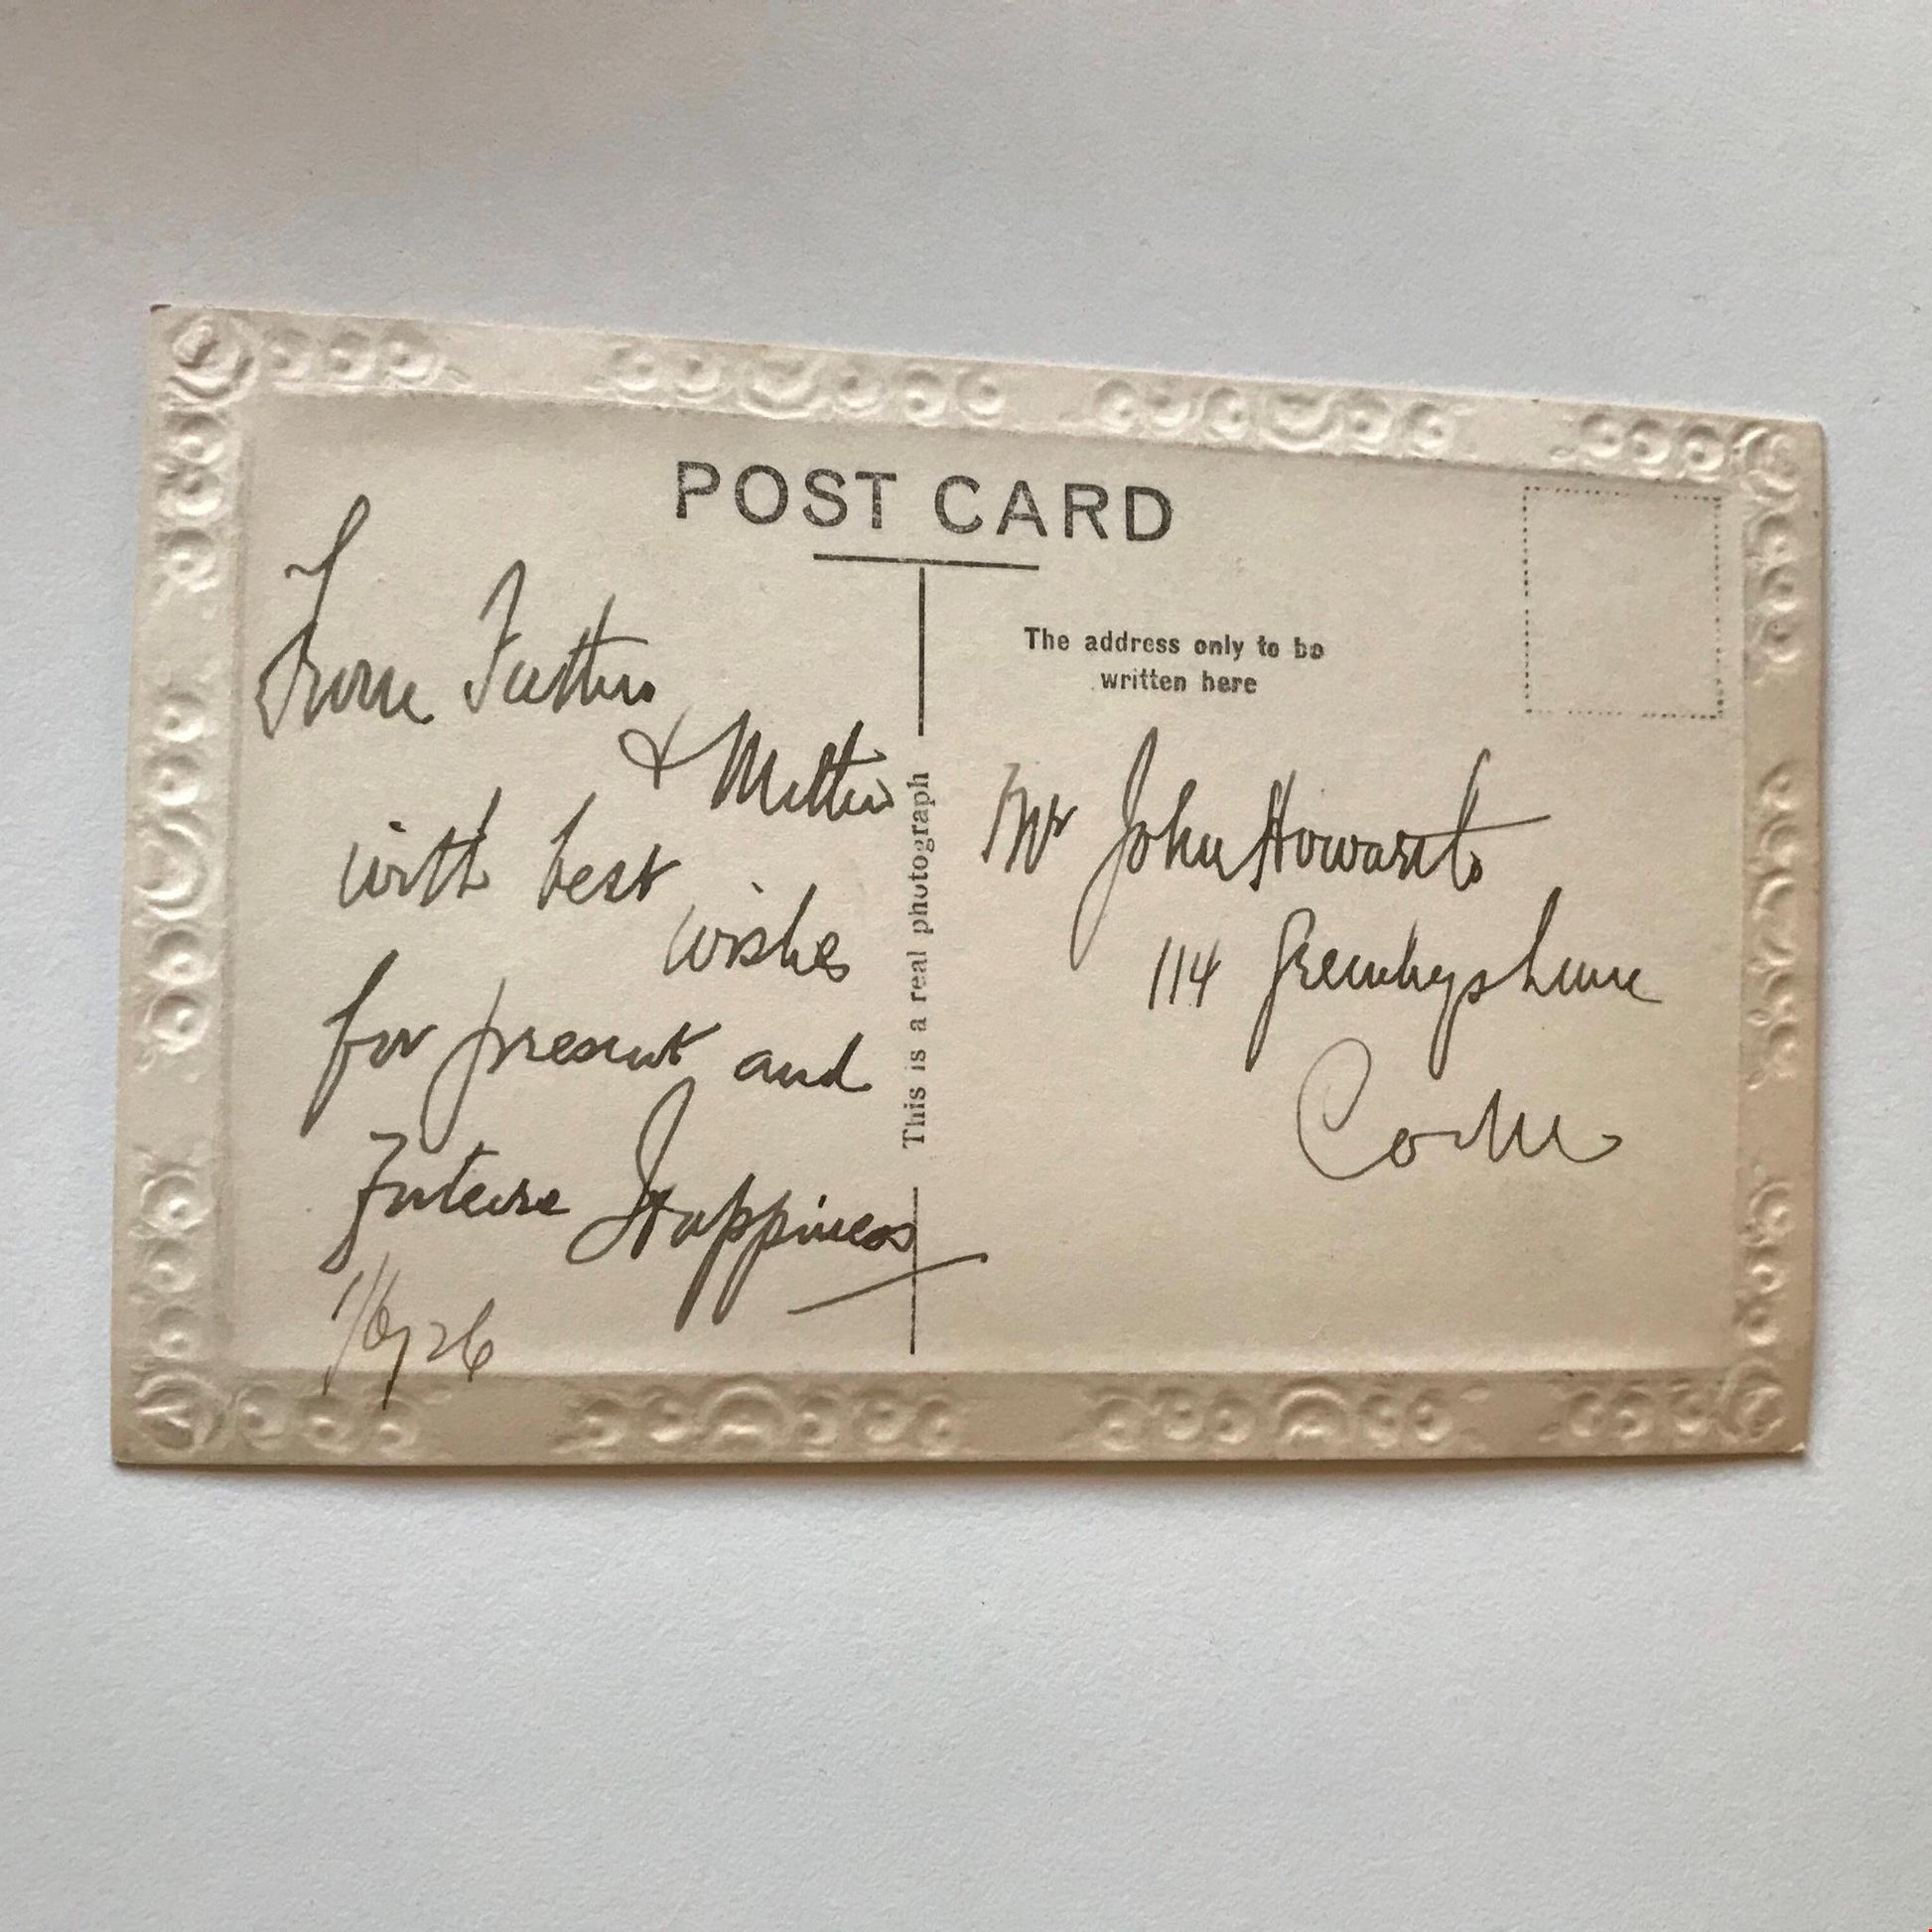 POST CARD
From Father
& Mother
with best
wishes
for present and
Future Happiness
1/6/26
This is a real photograph
The address only to be
written here
Mr John Howarth
114